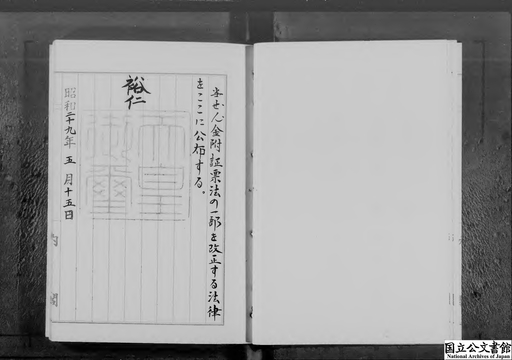 当せん金附証票法の一部を改正する法律
をここに公布する。
裕仁
天皇
御璽
昭和二十九年五月十五日
内閣
国立公文書館
National Archives of Japan